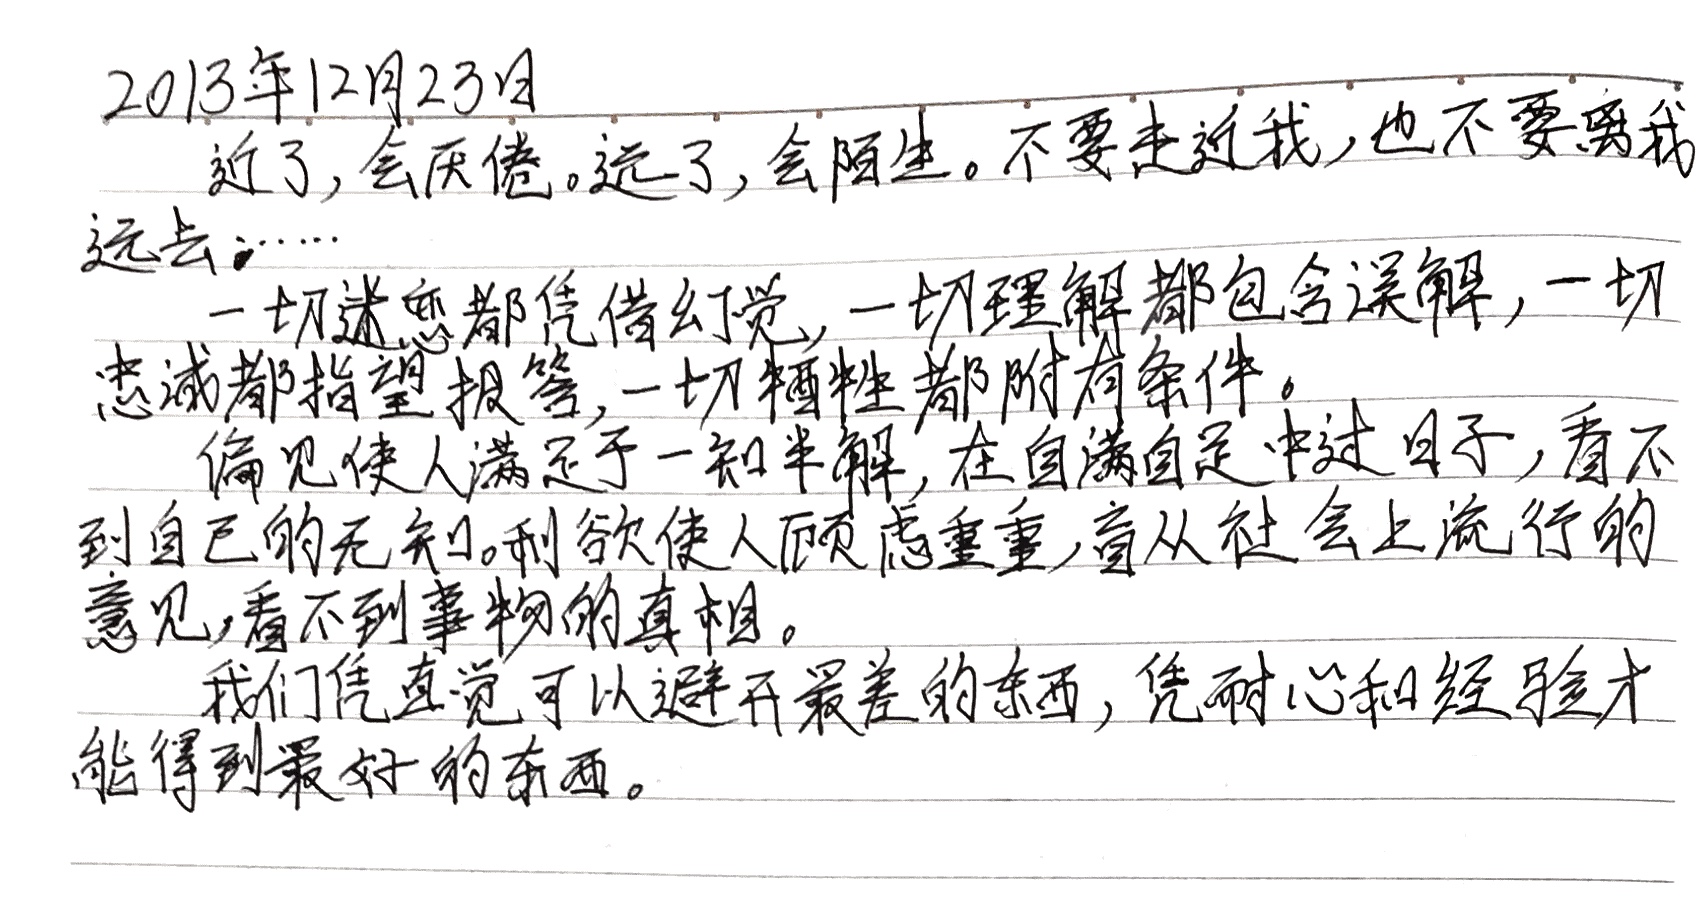 2013年12月23日
近了,会厌倦。远了,会陌生。不要走近我,也不要离我
远去……
一切迷恋都凭借幻觉,一切理解都包含误解,一切
忠诚都指望报答,一切牺牲都附有条件。
偏见使人满足于一知半解,在自满自足中过日子,看不
到自己的无知。利欲使人顾虑重重,盲从社会上流行的
意见,看不到事物的真相。
我们凭直觉可以避开最差的东西,凭耐心和经验才
能得到最好的东西。